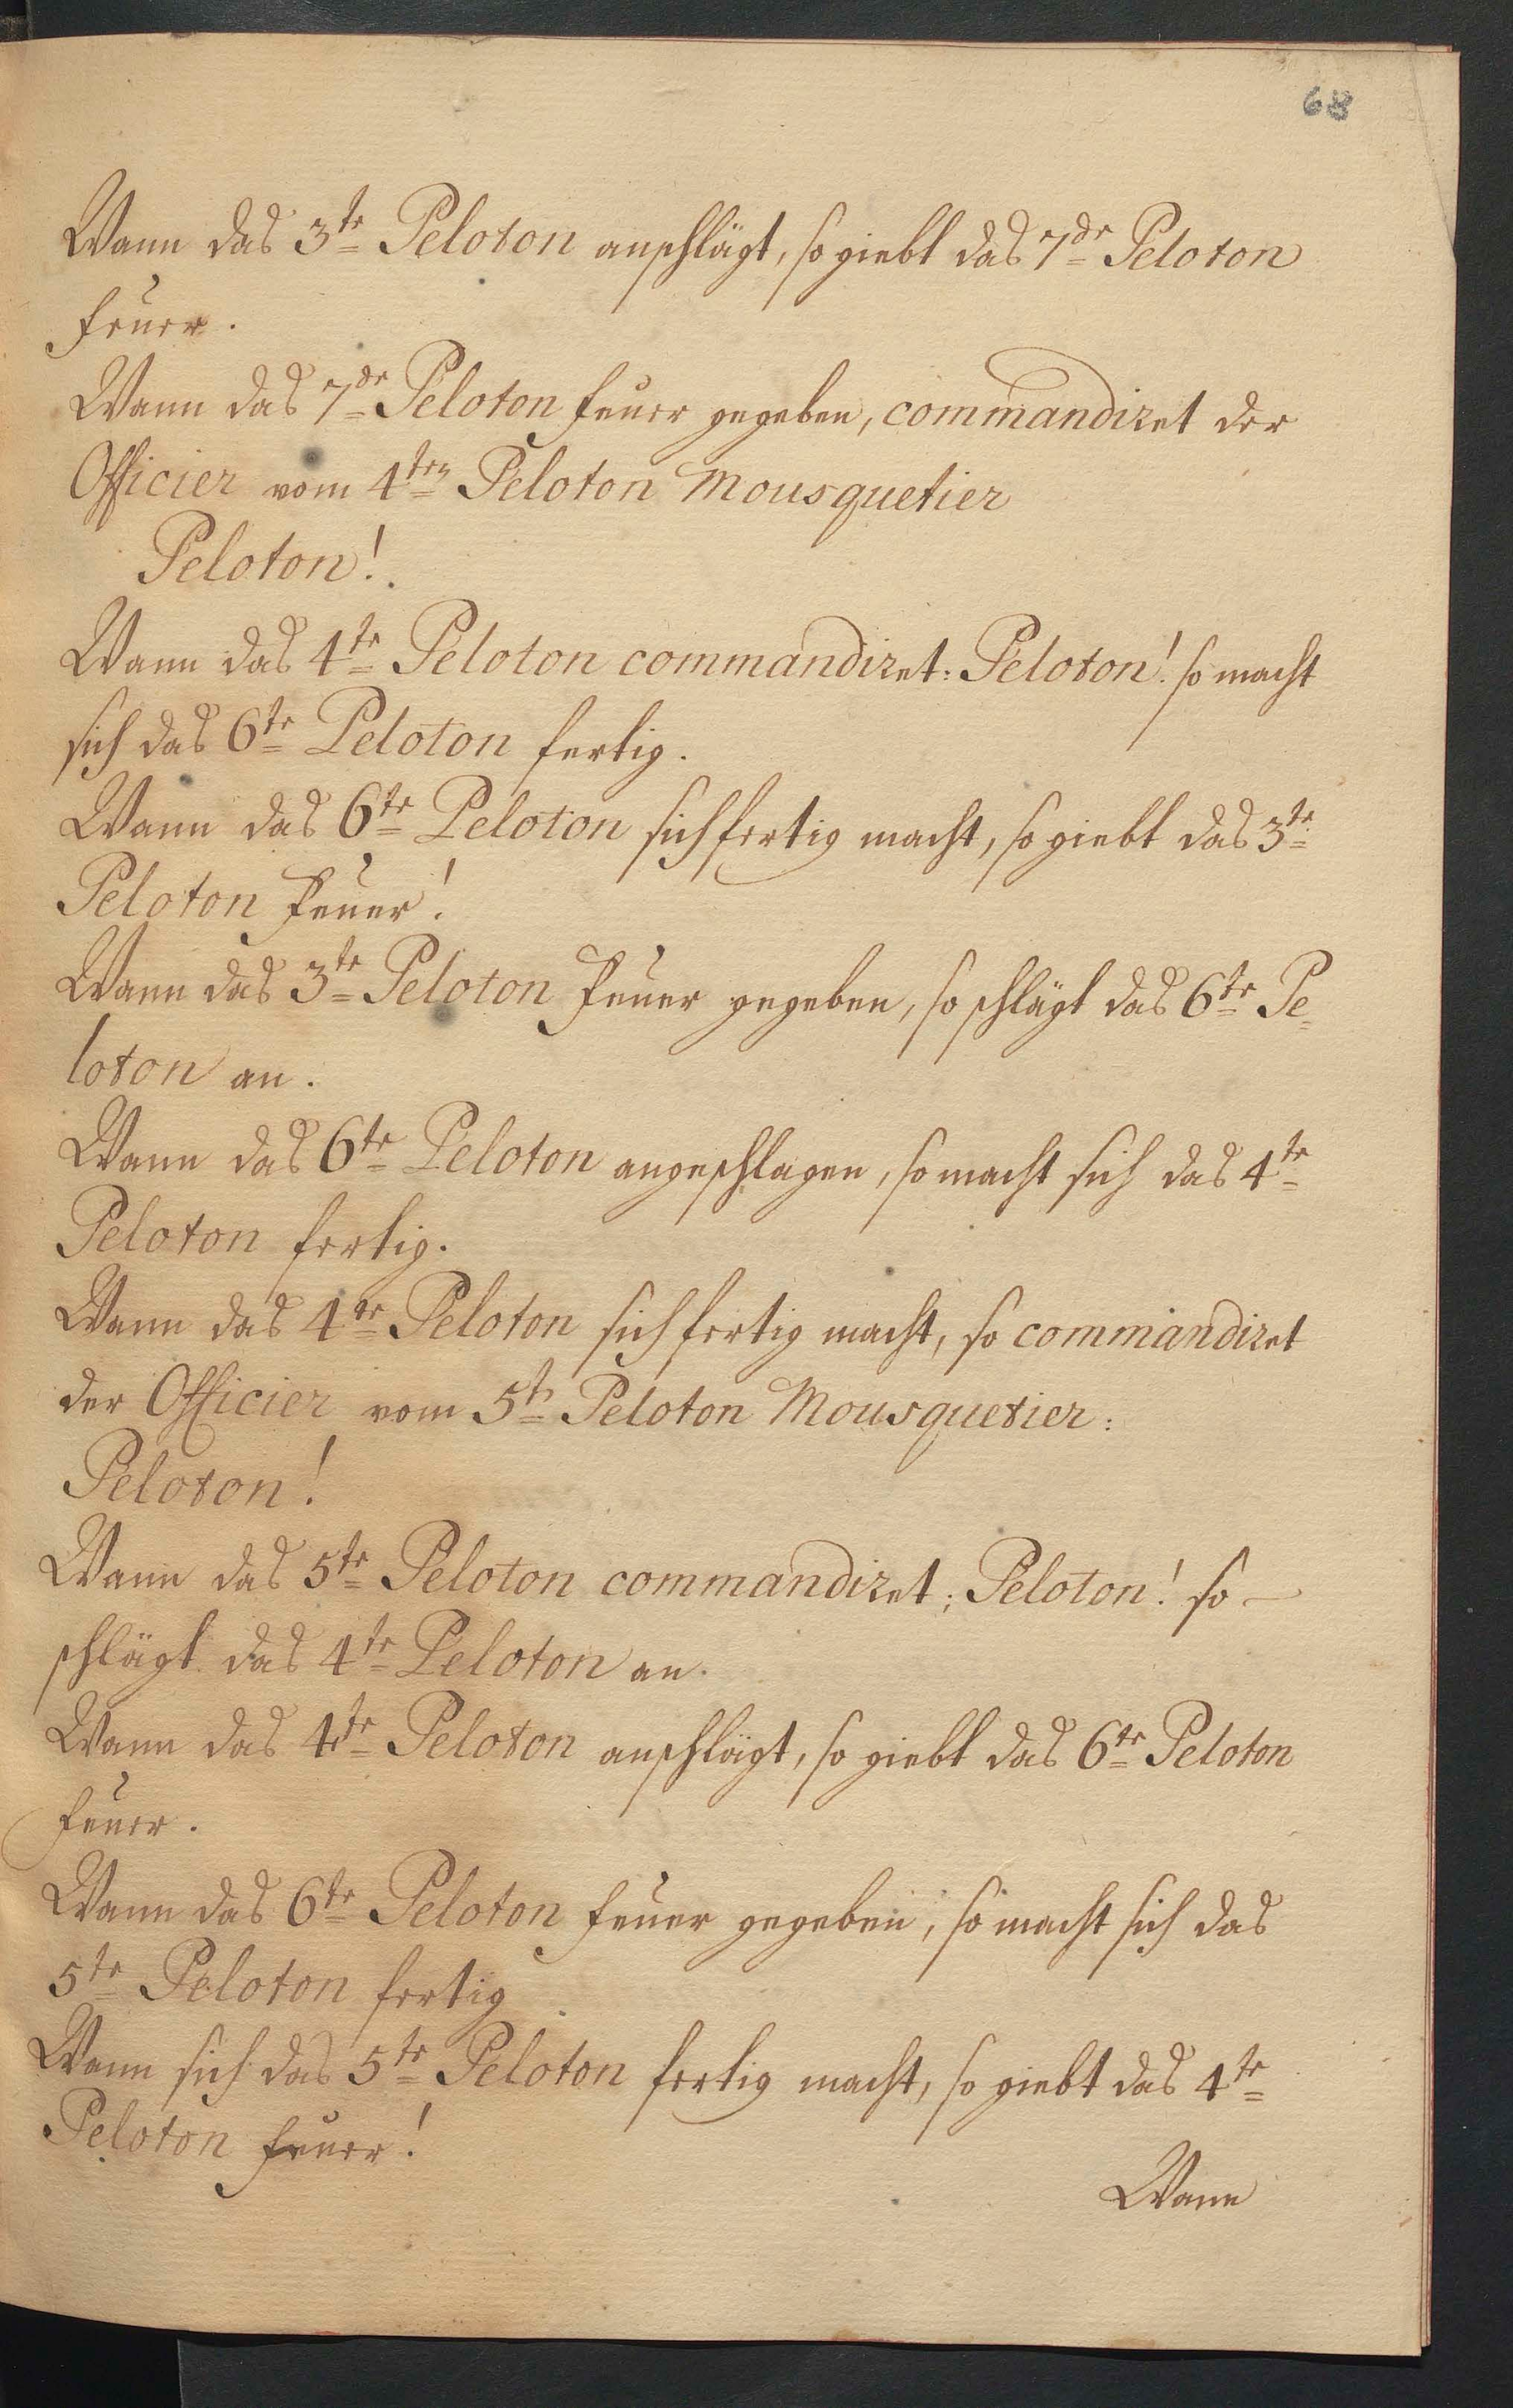 68
Wann das 3te Peloton anschlägt, so giebt das 7de Peloton
feuer.
Wann das 7de Peloton feuer gegeben, commandiret der
Officier vom 4ten Peloton Mousquetier
Peloton!
Wann das 4te Peloton commandiret: Peloton! so macht
sich das 6te Peloton fertig.
Wann das 6te Peloton sich fertig macht, so giebt das 3te
Peloton Feuer!
Wann das 3te Peloton Feuer gegeben, so schlägt das 6te Pe=
loton an.
Wann das 6te Peloton angeschlagen, so macht sich das 4te
Peloton fertig.
Wann das 4te Peloton sich fertig macht, so commandiret
der Officier vom 5t Peloton Mousquetier:
Peloton!
Wann das 5te Peloton commandiret; Peloton! so –
schlägt das 4te Peloton an.
Wann das 4te Peloton anschlägt, so giebt das 6te Peloton
feuer.
Wann das 6te Peloton feuer gegeben, so macht sich das
5te Peloton fertig
Wann sich das 5te Peloton fertig macht, so giebt das 4te
Peloton feuer!
Wann